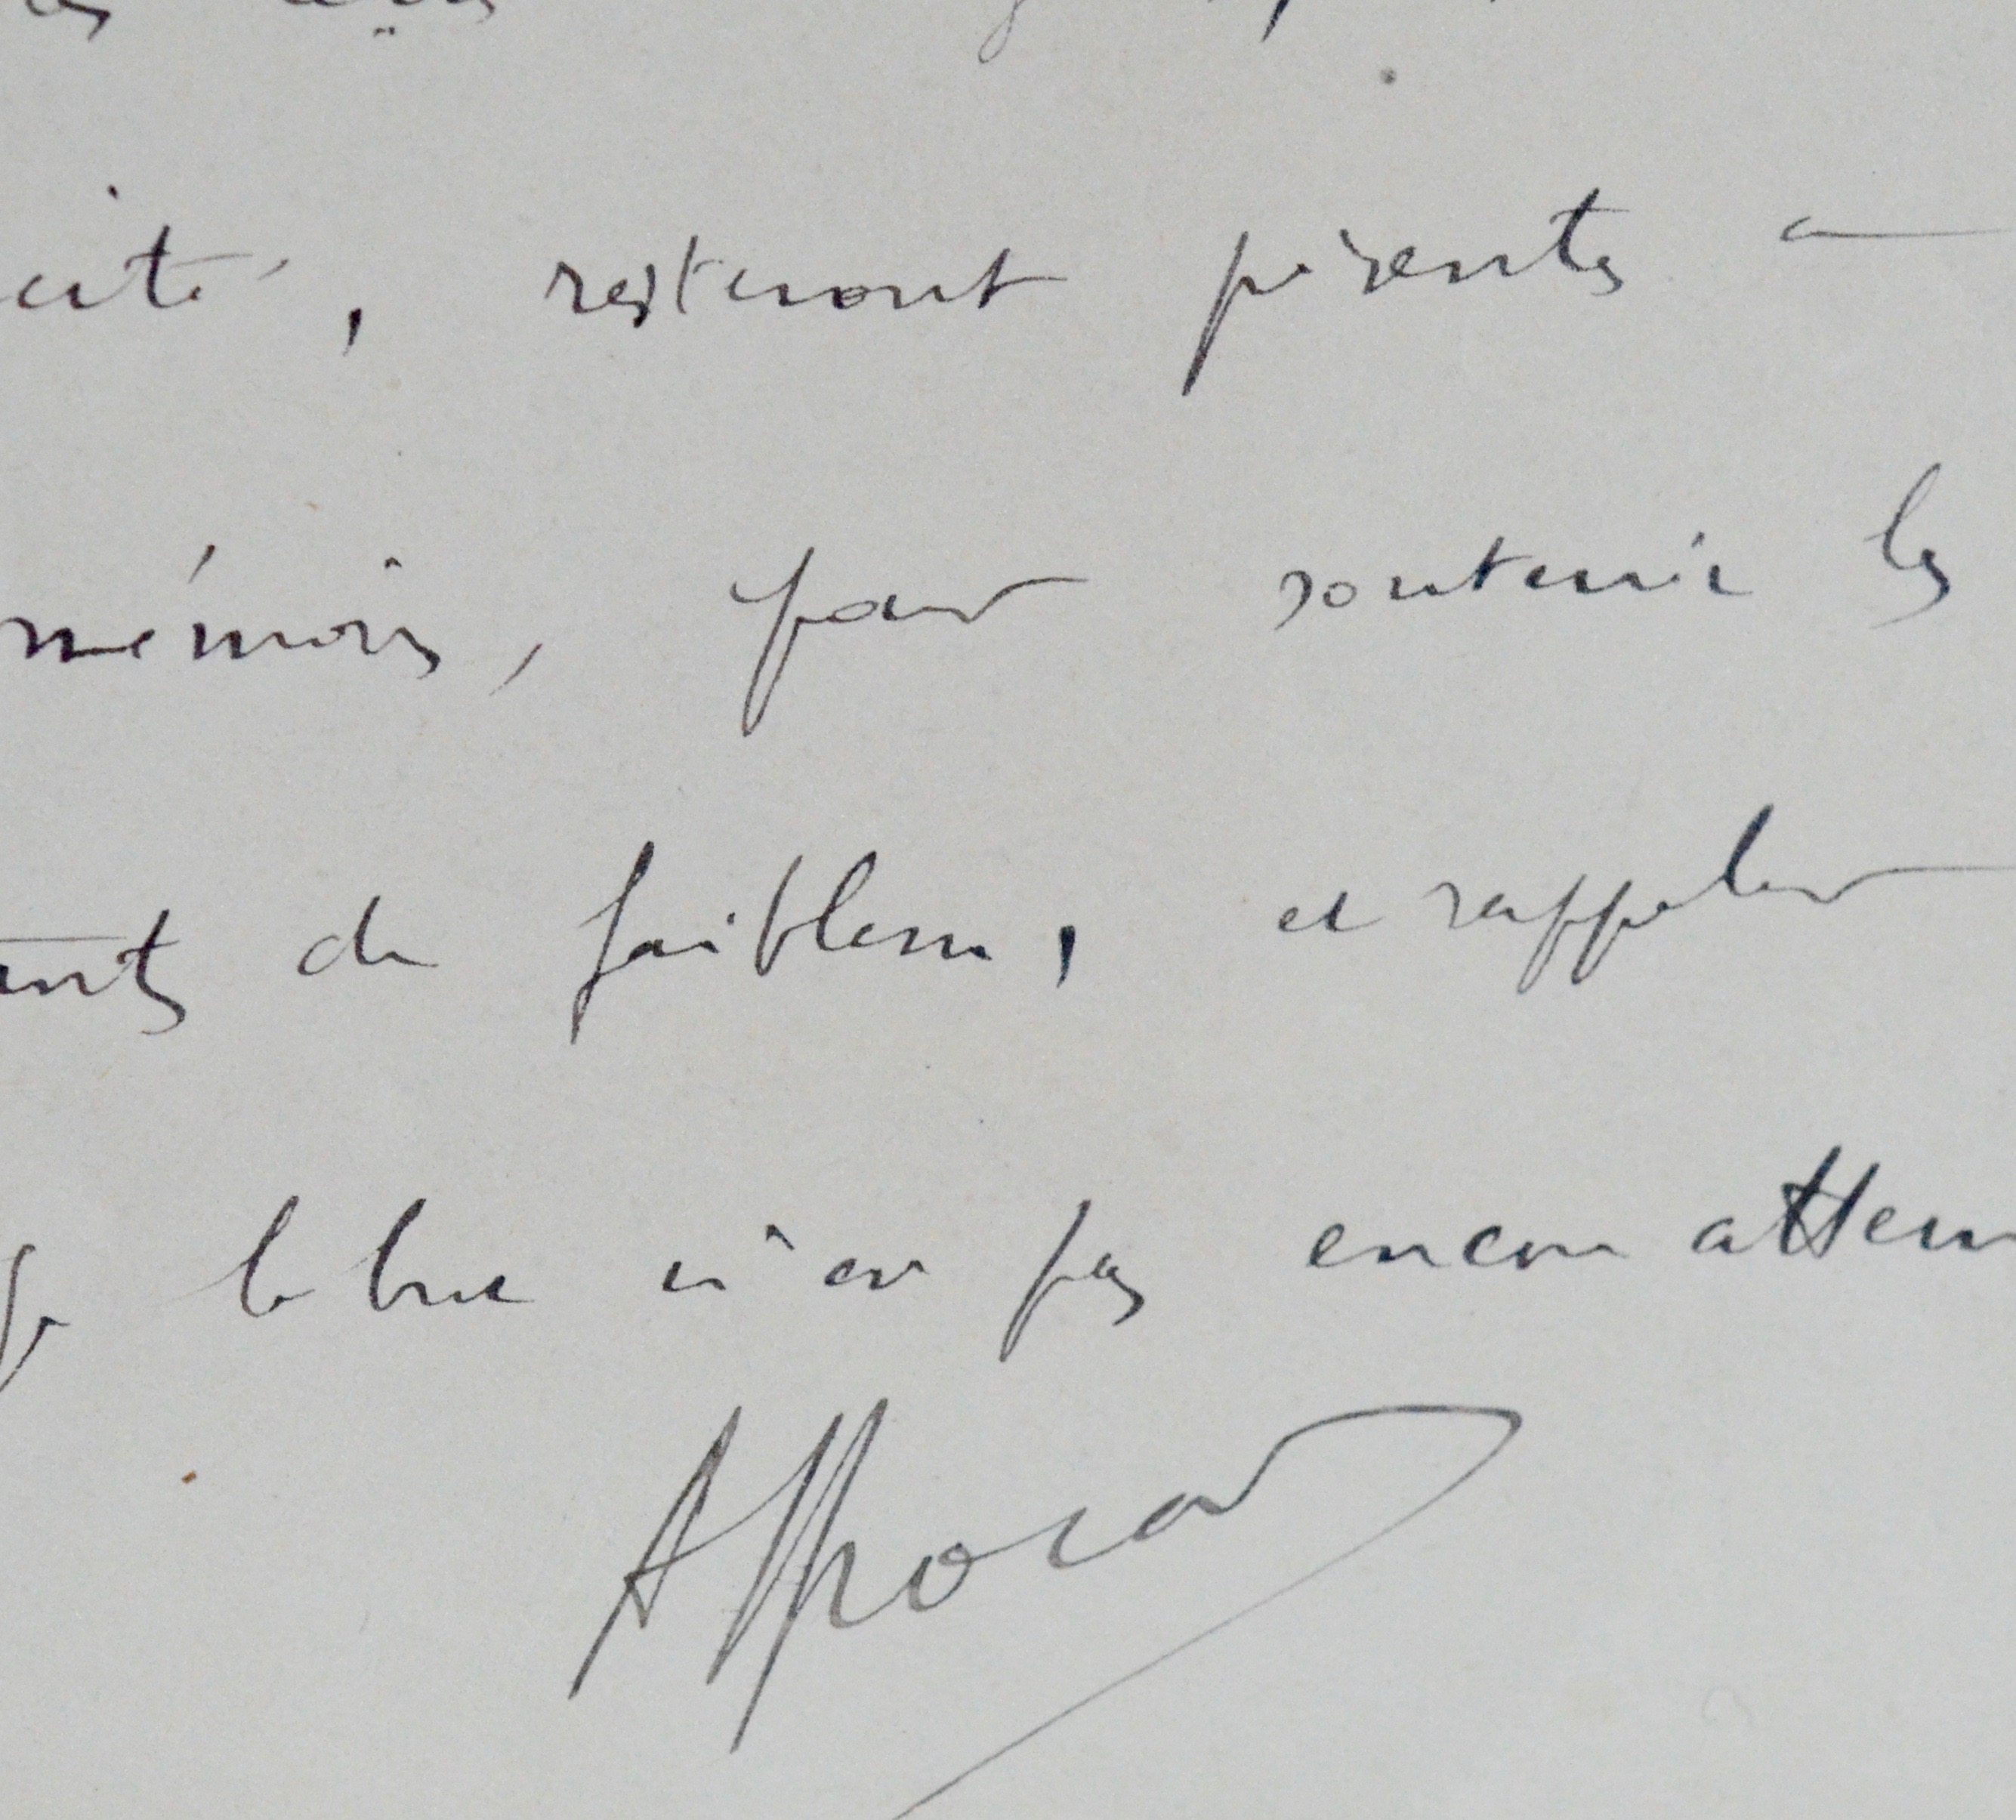 cité, resteront présents à
mémoires, pour soutenir les
de faiblesse, et rappeler
le but n'est pas encore